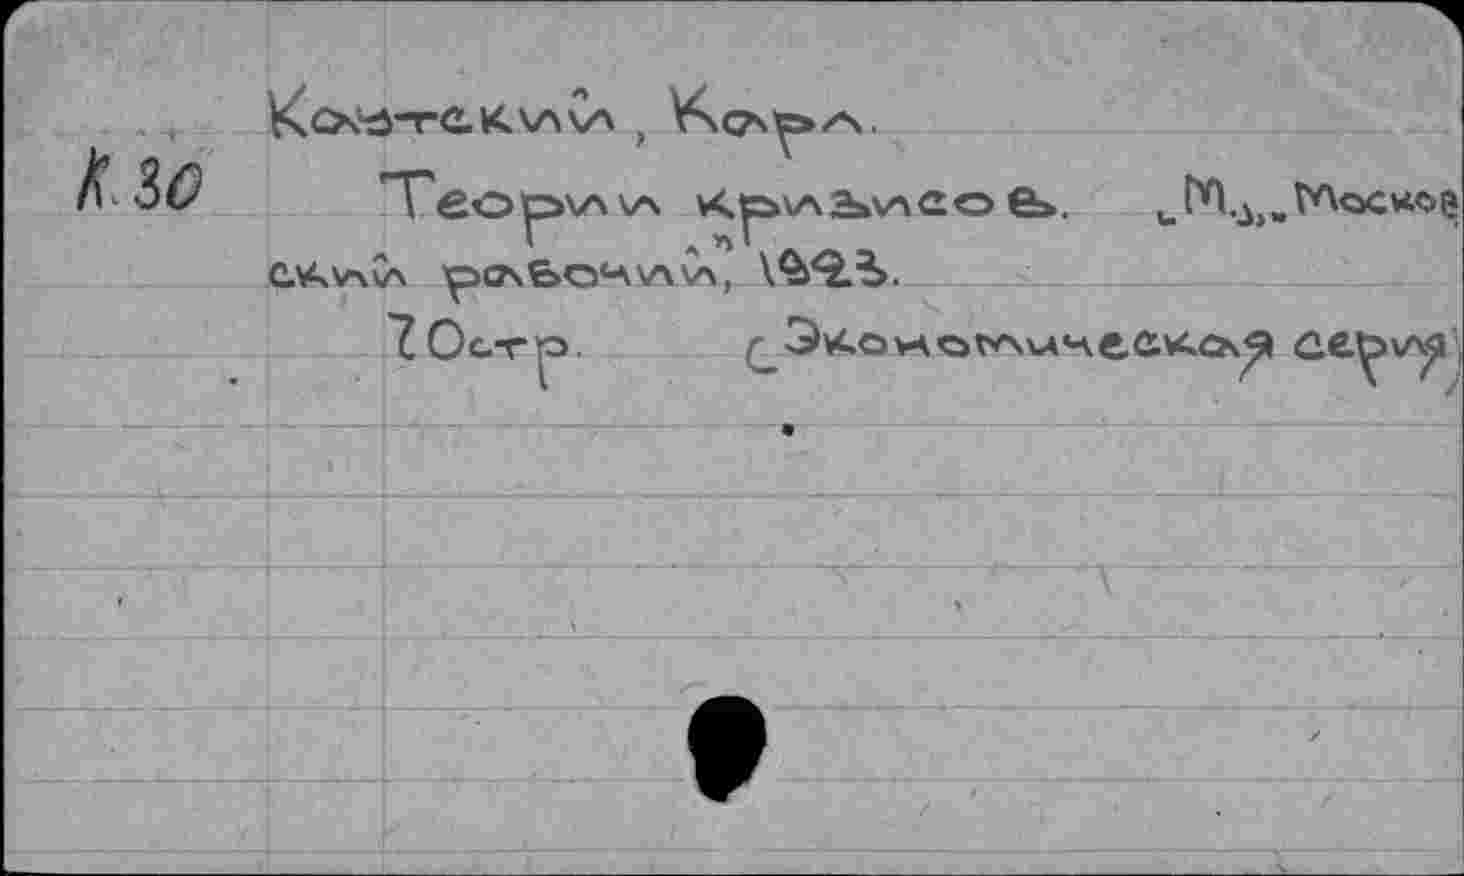 Каутский, Карл.
К 30
Теории кризисов. [М.], „Московский рабочий", 1923.
70стр. [Экономическая серия